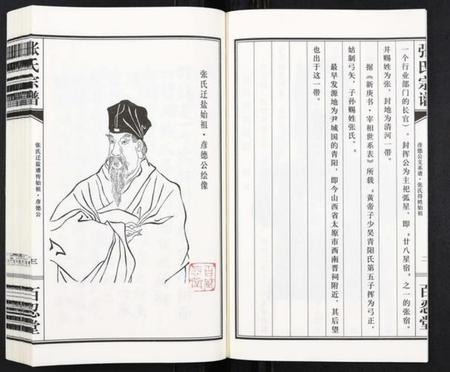 张氏宗谱
彦德公支系谱·张氏得姓始祖
二
百忍堂
一个行业部门的长官）。封挥公为主祀弧星，即，廿八星宿，之一的张宿。
并赐姓为张，封地为清河一带。
据《新唐书·宰相世系表》所载，黄帝子少昊青阳氏第五子挥为弓正，
始制弓矢，子孙赐姓张氏。
最早发源地为尹城国的青阳，即今山西省太原市西南晋祠附近，其后望
也出于这一带。
张氏迁盐始祖·彦德公绘像
张氏宗谱
张氏迁盐谱传始祖·彦德公
三
百忍堂